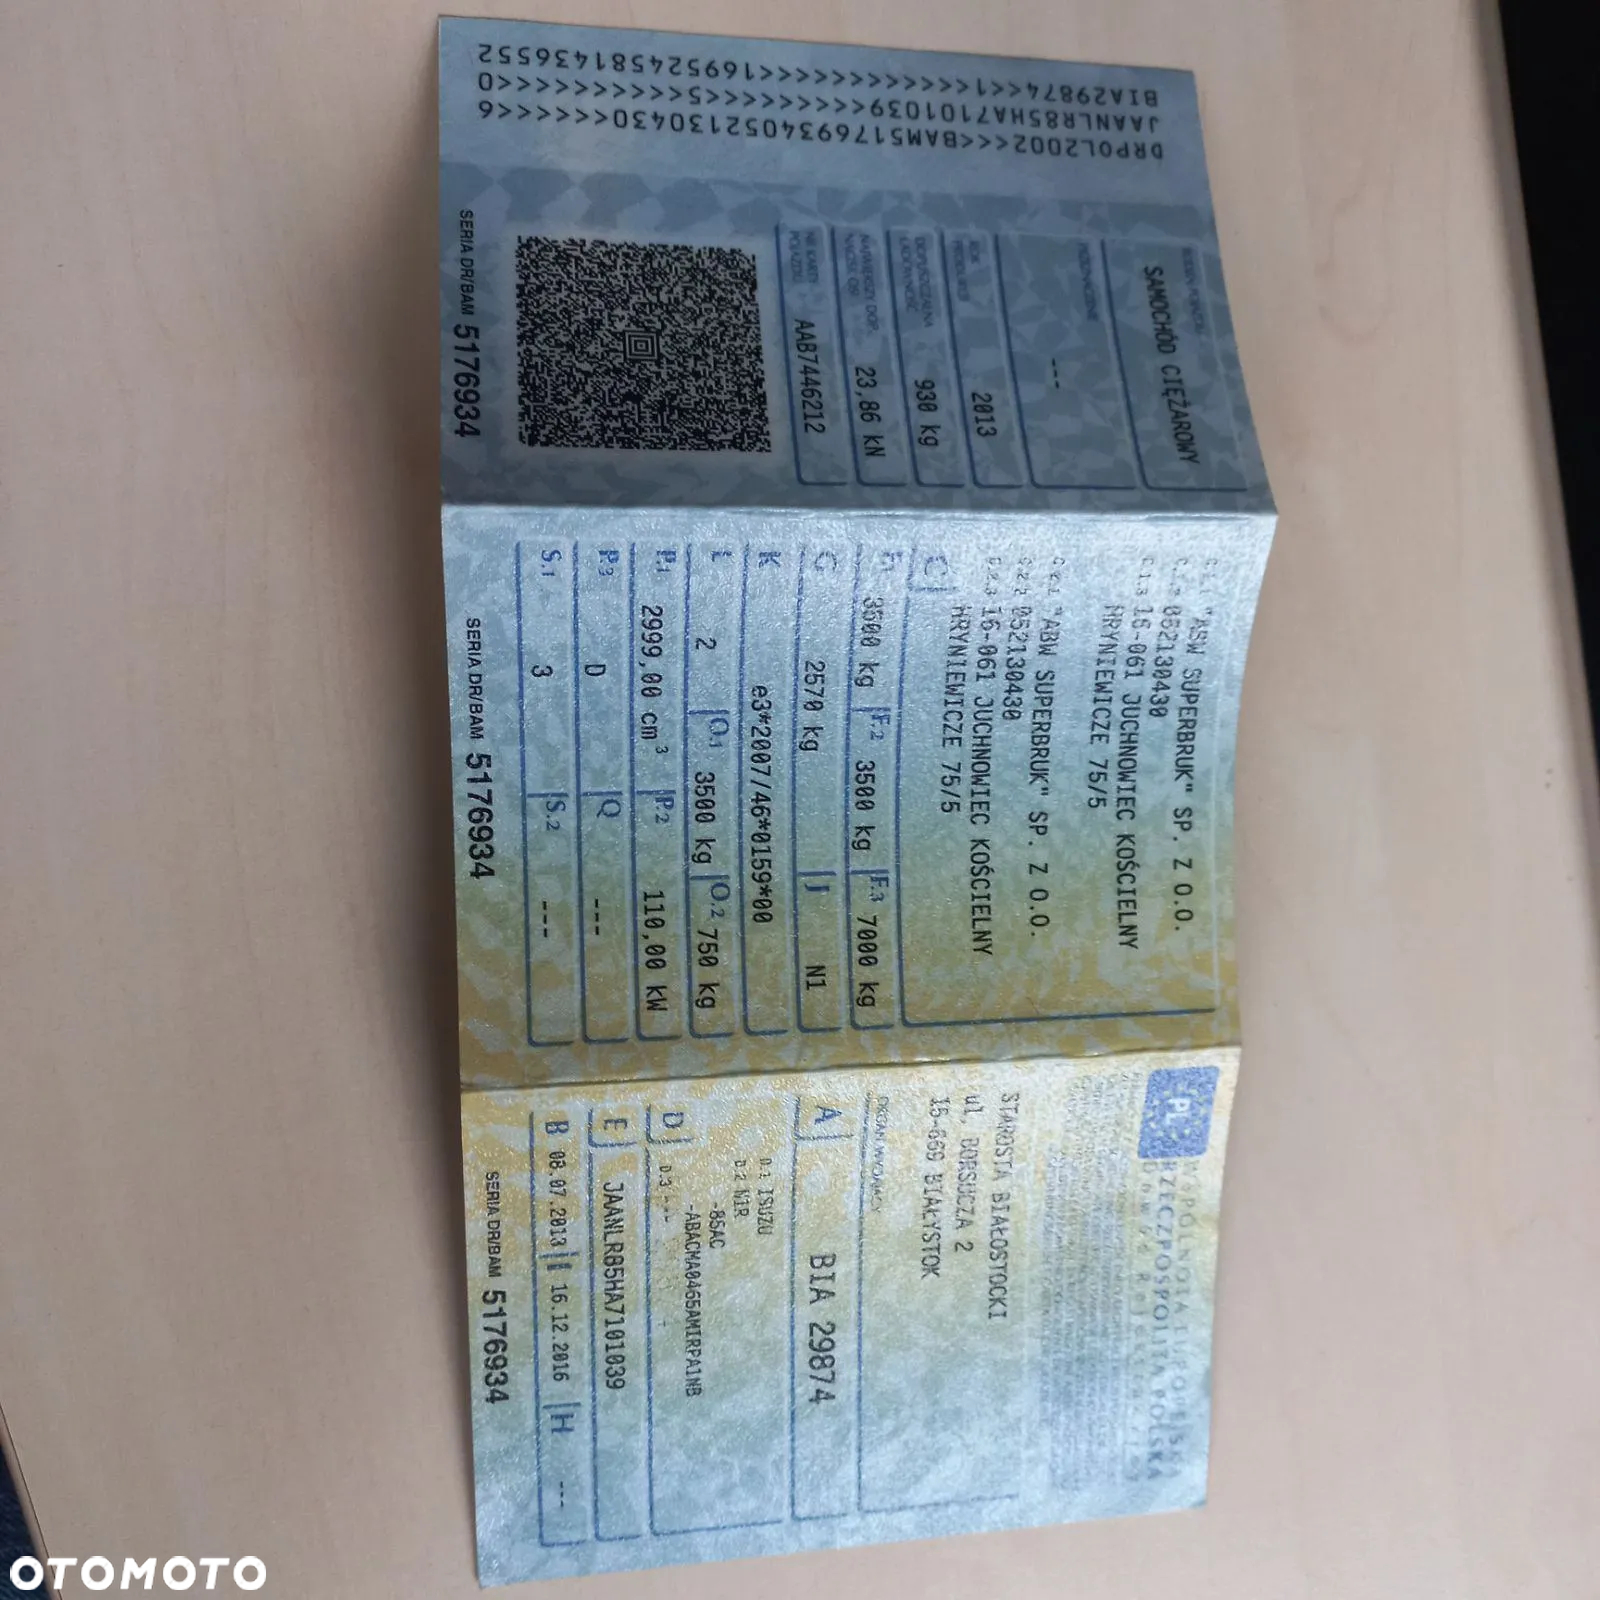 PL
RZECZPOSPOLITA POLSKA
STAROSTA BIAŁOSTOCKI
ul. BORSUCZA 2
15-669 BIAŁYSTOK
ORGAN WYDAJĄCY
A BIA 29874
D
D.1 ISUZU
D.2 N1R
-85AC
-ABACMA0465AMIRPA1NB
D.3 ---
E JAANLR85HA7101039
B 08.07.2013 I 16.12.2016 H ---
SERIA DR/BAM 5176934
C.1.1 "ABW SUPERBRUK" SP. Z O.O.
C.1.2 052130430
C.1.3 16-061 JUCHNOWIEC KOŚCIELNY
HRYNIEWICZE 75/5
C.2.1 "ABW SUPERBRUK" SP. Z O.O.
C.2.2 052130430
C.2.3 16-061 JUCHNOWIEC KOŚCIELNY
HRYNIEWICZE 75/5
C
F.1 3500 kg F.2 3500 kg F.3 7000 kg
G 2570 kg J N1
K e3*2007/46*0159*00
L 2 O.1 3500 kg O.2 750 kg
P.1 2999,00 cm³ P.2 110,00 kW
P.3 D Q ---
S.1 3 S.2 ---
SERIA DR/BAM 5176934
RODZAJ POJAZDU
SAMOCHÓD CIĘŻAROWY
PRZEZNACZENIE
---
ROK PRODUKCJI
2013
DOPUSZCZALNA ŁADOWNOŚĆ
930 kg
NAJWIĘKSZY DOP. NACISK OSI
23,86 kN
NR KARTY POJAZDU
AAB7446212
SERIA DR/BAM 5176934
DRPOL2002<<BAM5176934052130430<<<<<6
JAANLR85HA7101039<<<<<<<<5<<<<<<<<<0
BIA29874<<1<<<<<<<<<<169524581436552
OTOMOTO